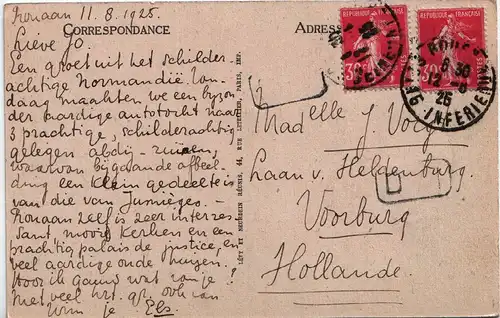 Rouaan 11.8.1925.
Lieve Jo.
CORRESPONDANCE
ADRESSE
Een groet uit het schilder-
achtige Normandië. Van-
daag maakten we een byzon-
der aardige autotocht naar
3 prachtige, schilderachtig
gelegen abdij-ruïnen,
waarvan bijgaande afbeel-
ding een klein gedeelte is
van die van Jumièges.
Rouaan zelf is zeer interes-
sant, mooie kerken en een
prachtig palais de justice, en
veel aardige oude huizen.
Hoor ik gauw wat van je?
Met veel hrt. gr. ook van
Wim je Els.
LÉVY ET NEURDEIN RÉUNIS, 44, RUE LETELLIER, PARIS, IMP.
Madelle J. Vory
Laan v. Heldenburg
Voorburg
Hollande.
RÉPUBLIQUE FRANÇAISE
30
RÉPUBLIQUE FRANÇAISE
30
ROUEN
8 30
12-8
25
SEINE INFERIEURE